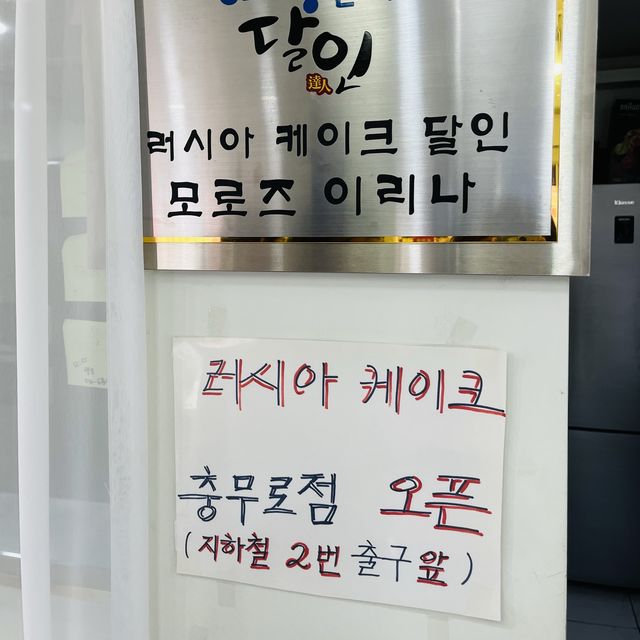 달인
達人
러시아 케이크 달인
모로즈 이리나
러시아 케이크
충무로점 오픈
(지하철 2번 출구 앞)
Klasse